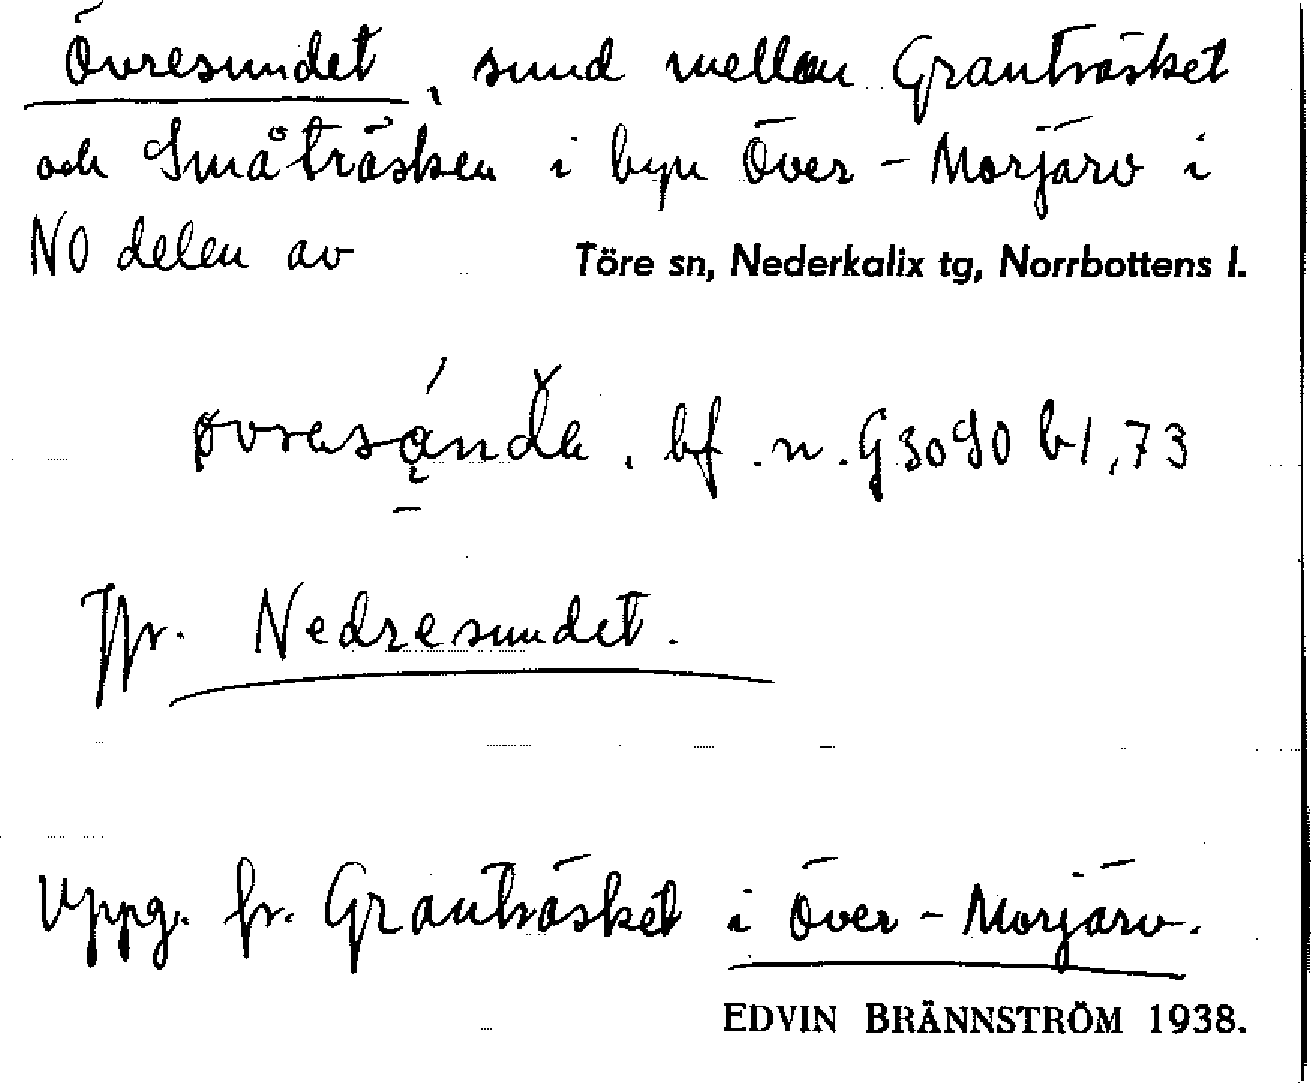 Övresundet, sund mellan Granträsket
och Småträsken i byn Över-Morjärv i
NO delen av Töre sn, Nederkalix tg, Norrbottens l.
bf. n. G 3090 b1, 73
Jfr. Nedresundet.
Uppg. fr. Granträsket i Över-Morjärv.
EDVIN BRÄNNSTRÖM 1938.